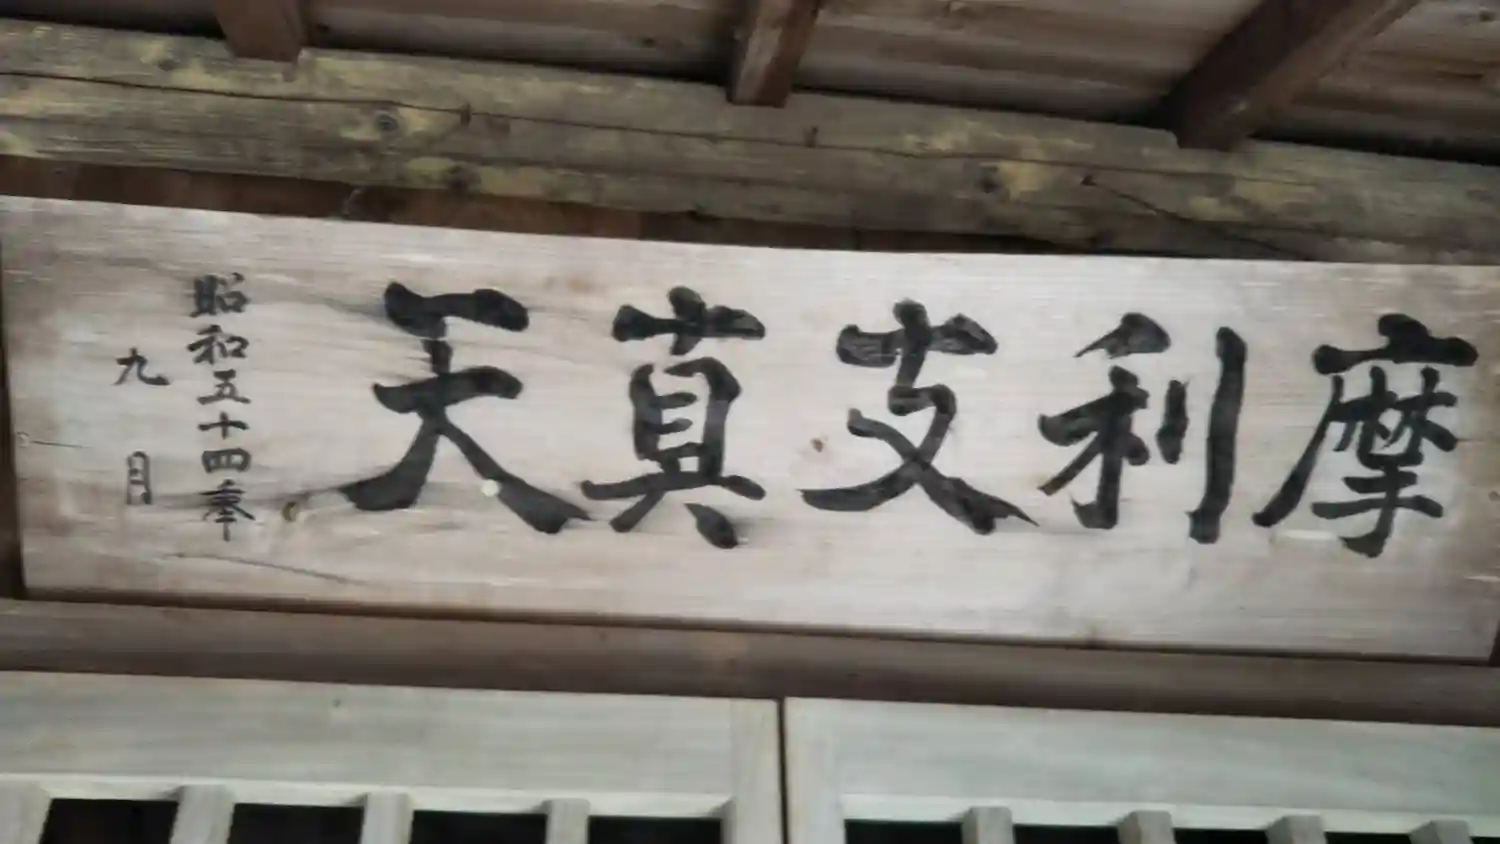 摩利支真天
昭和五十四奉
九月